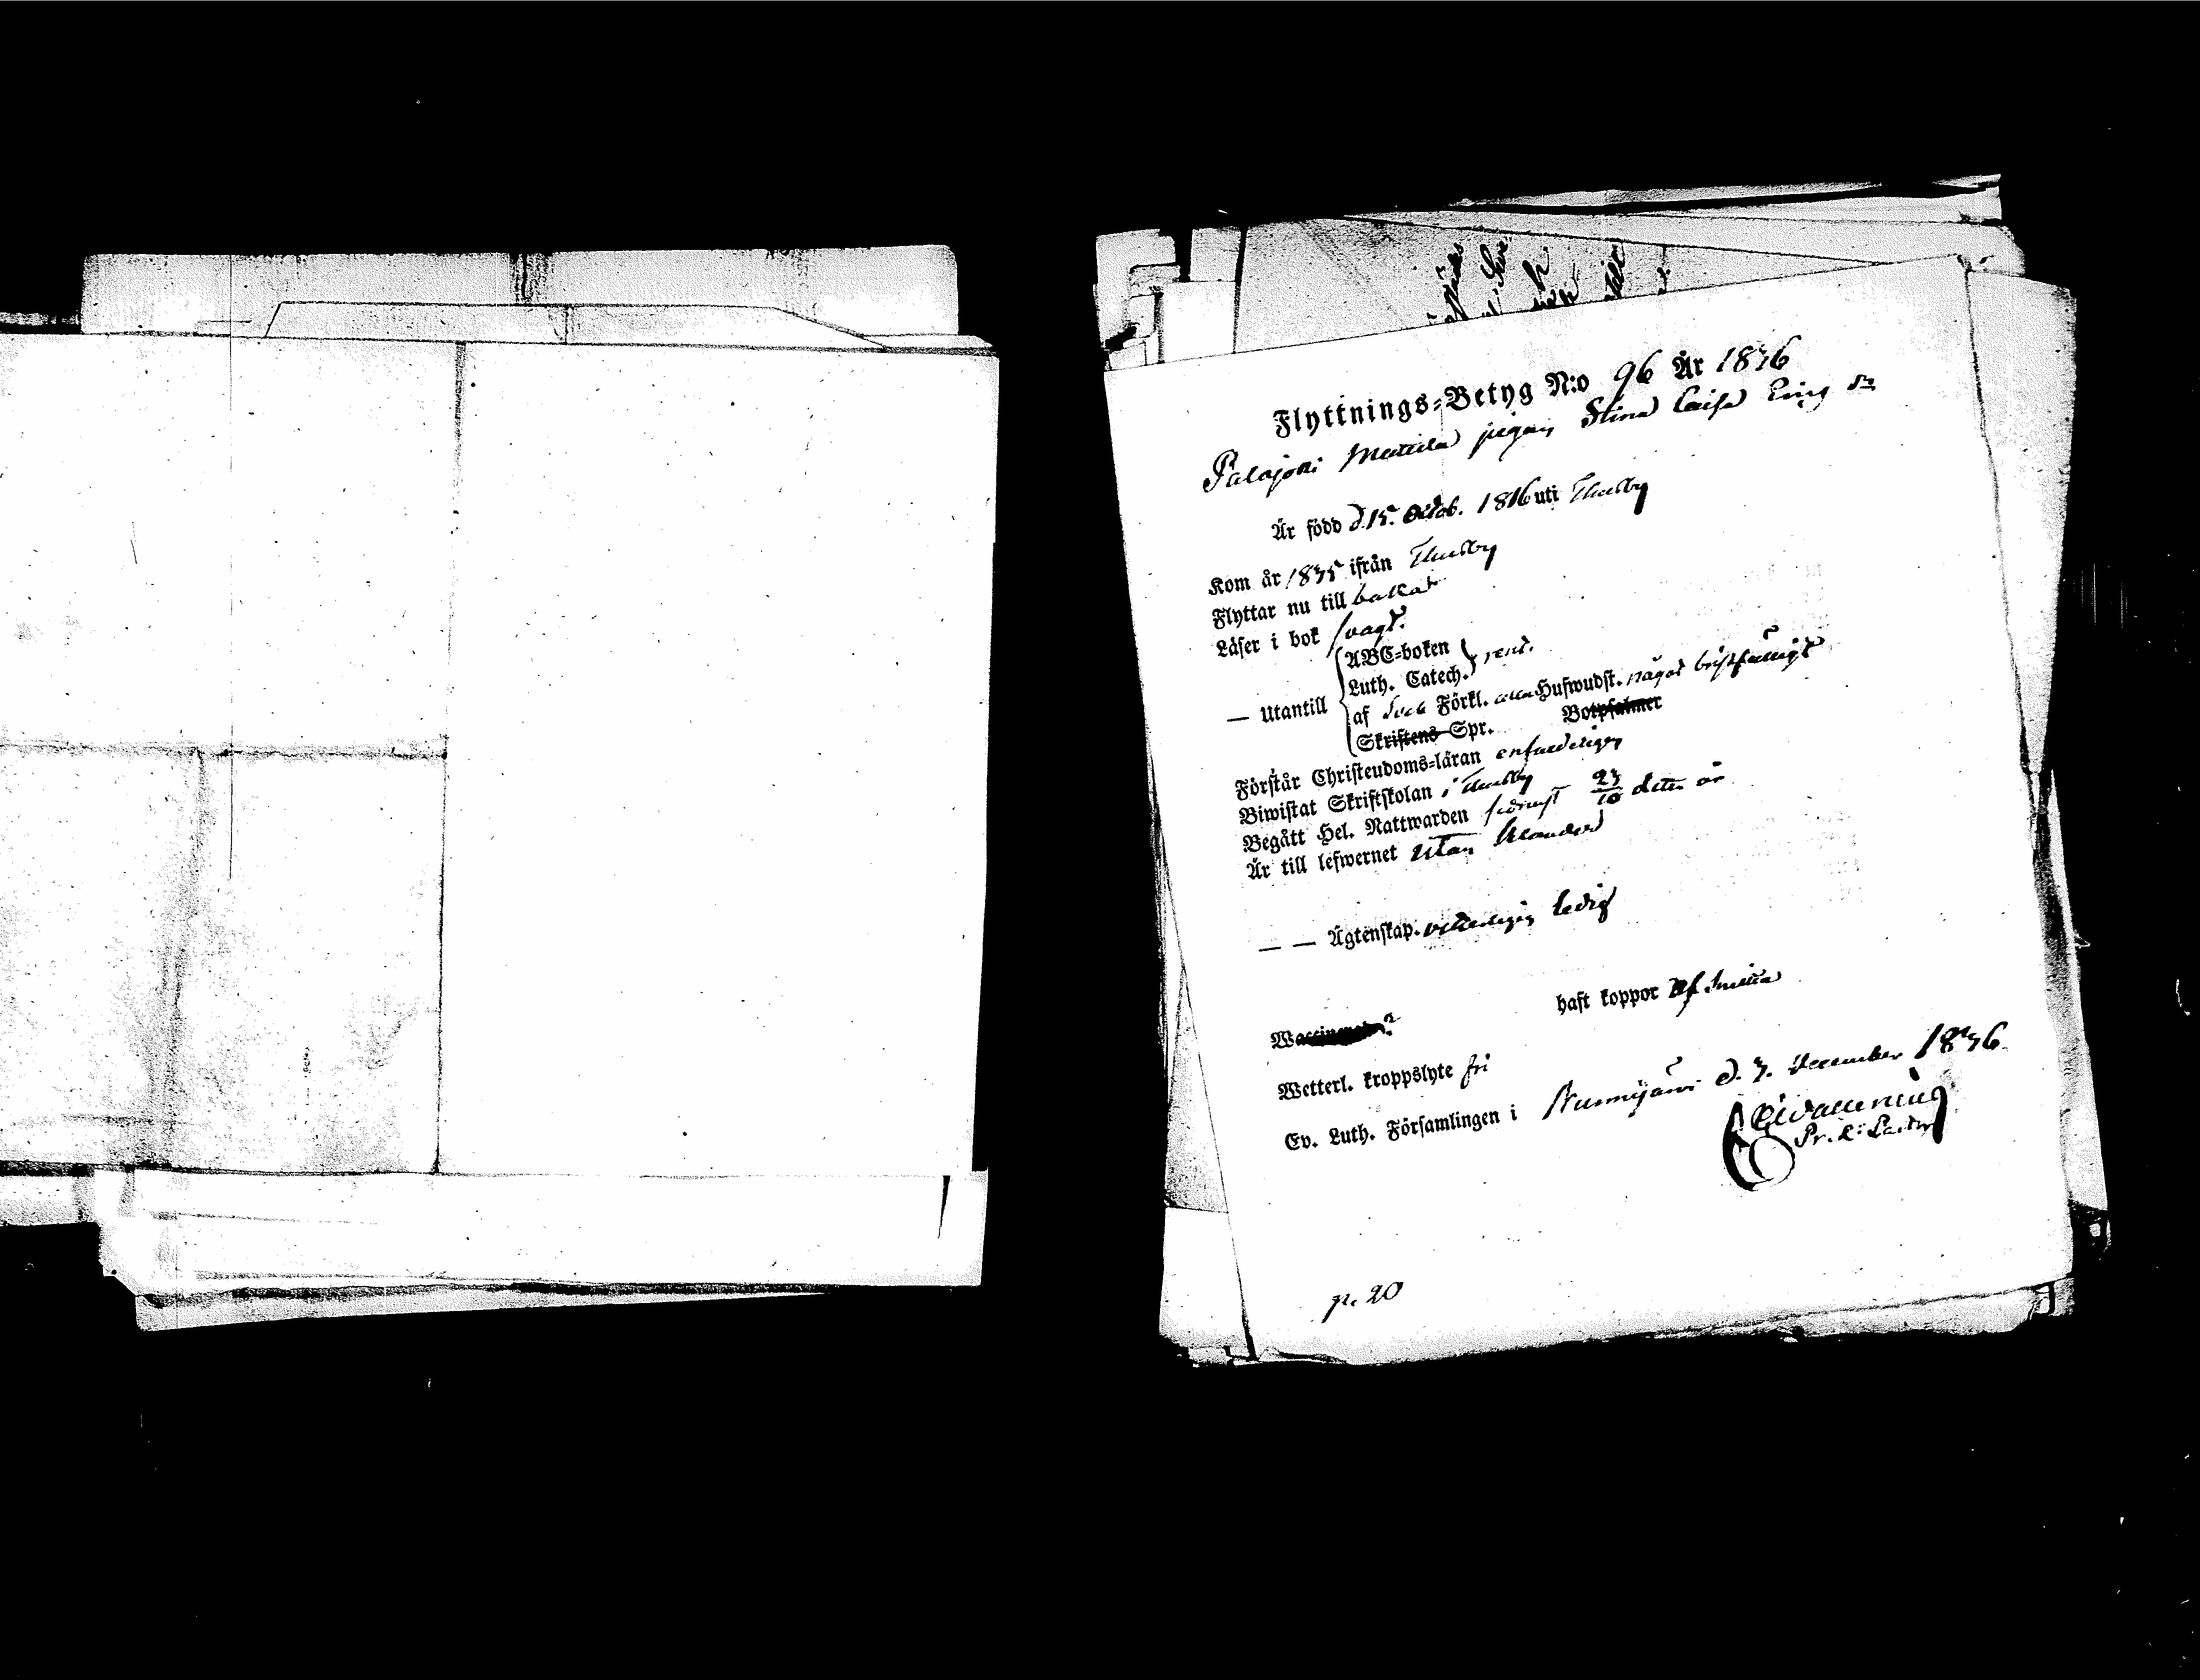 Flyttnings-Betyg N:o 96 År 1836
Palajoki Mattila pigan Stina Caisa Eriq dr
Är född d. 15. Octob. 1816 uti Thusby
Kom år 1835 ifrån Thusby
Flyttar nu till baka
Läser i bok svagt.
— Utantill
ABC-boken
Luth. Catech. rent.
af Förkl. Hufwudst. något bristfälligt
Skriftens Spr. Botpsalmer
Förstår Christendoms-läran enfaldeligen
Biwistat Skriftskolan i Thusby
Begått Hel. Nattwarden sednast 23/10 detta år
Är till lefwernet utan klander
— — Ägtenskap. veterligen ledig
haft koppor
Wetterl. kroppslyte fri
Ev. Luth. Församlingen i Nurmijärvi d. 3. December 1836
p. 20